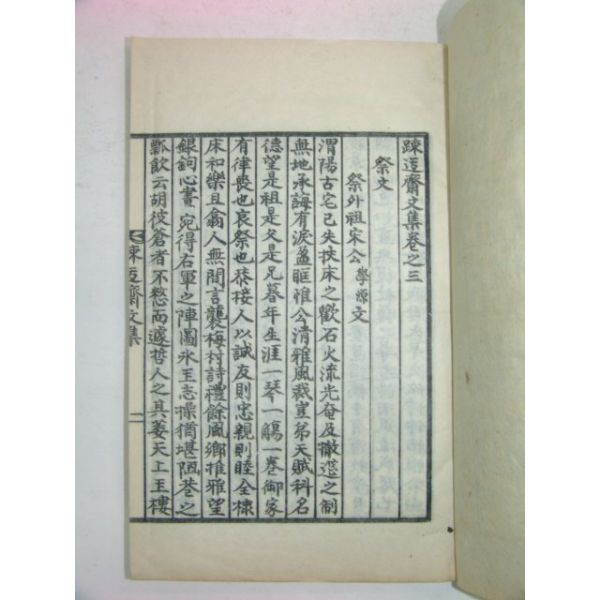 踈迃齋文集卷之三
祭文
祭外祖宋公學源文
渭陽古宅已失扶床之歡石火流光奄及撤筵之制
無地承誨有淚盈眶惟公淸雅風裁豈弟天賦科名
德望是祖是父是兄暮年生涯一琴一觴一卷御家
有律喪也哀祭也恭接人以誠友則忠親則睦全棣
床和樂且翕人無間言襲梅村詩禮餘風鄕推雅望
銀鉤心畫宛得右軍之陣圖氷玉志操猶堪陋巷之
瓢飮云胡彼蒼者不憖而遽哲人之其萎天上玉樓
踈迃齋文集 一